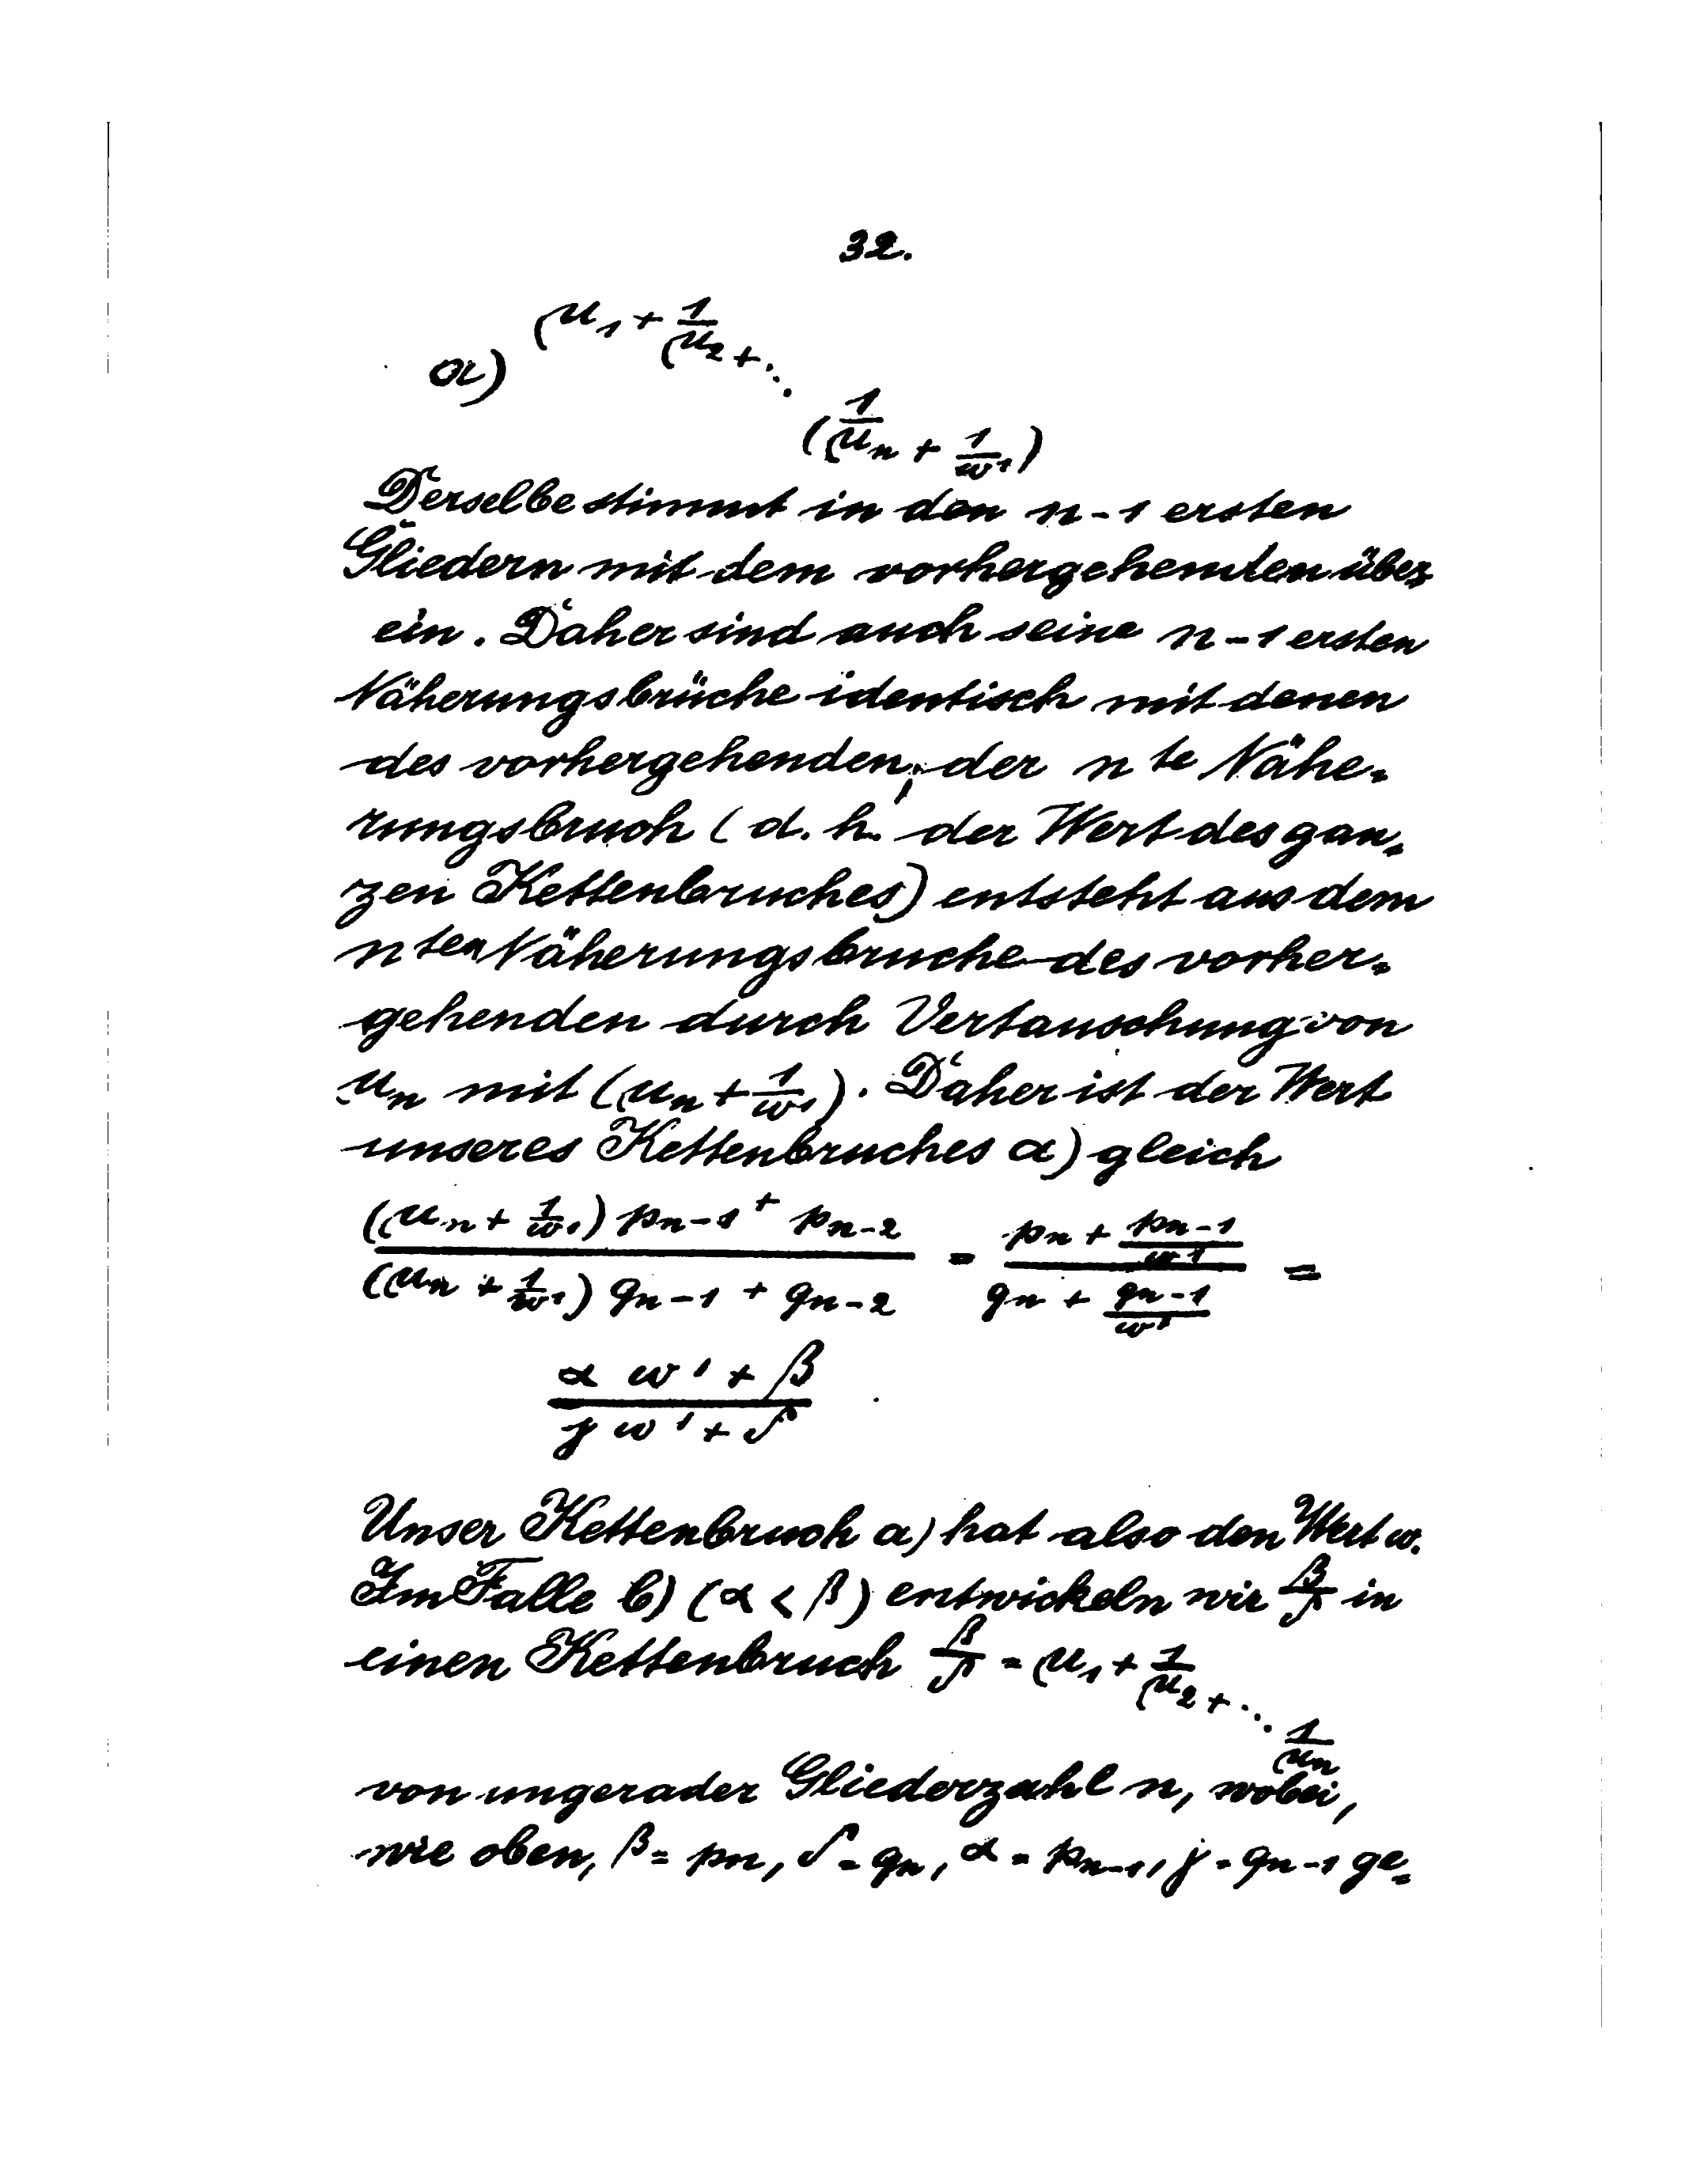 32.
a) (μ₁ + 1/(μ₂ + ⋱
(1/(μₙ + 1/ω'))
Derselbe stimmt in den n-1 ersten
Gliedern mit dem vorhergehenden über
ein. Daher sind auch seine n-1 ersten
Näherungsbrüche identisch mit denen
des vorhergehenden; der n te Nähe=
rungsbruch (d. h. der Wert des gan=
zen Kettenbruches) entsteht aus dem
n ten Näherungsbruche des vorher=
gehenden durch Vertauschung von
μₙ mit (μₙ + 1/ω'). Daher ist der Wert
unseres Kettenbruches a) gleich
((μₙ + 1/ω') pₙ₋₁ + pₙ₋₂)/((μₙ + 1/ω') qₙ₋₁ + qₙ₋₂) = (pₙ + pₙ₋₁/ω')/(qₙ + qₙ₋₁/ω') =
(α ω' + β)/(γ ω' + δ)
Unser Kettenbruch a) hat also den Wert ω.
Im Falle b) (α < β) entwickeln wir β/δ in
einen Kettenbruch β/δ = μ₁ + 1/(μ₂ + ⋱ 1/μₙ
von ungerader Gliederzahl n, wobei,
wie oben, β = pₙ, δ = qₙ, α = pₙ₋₁, γ = qₙ₋₁ ge=